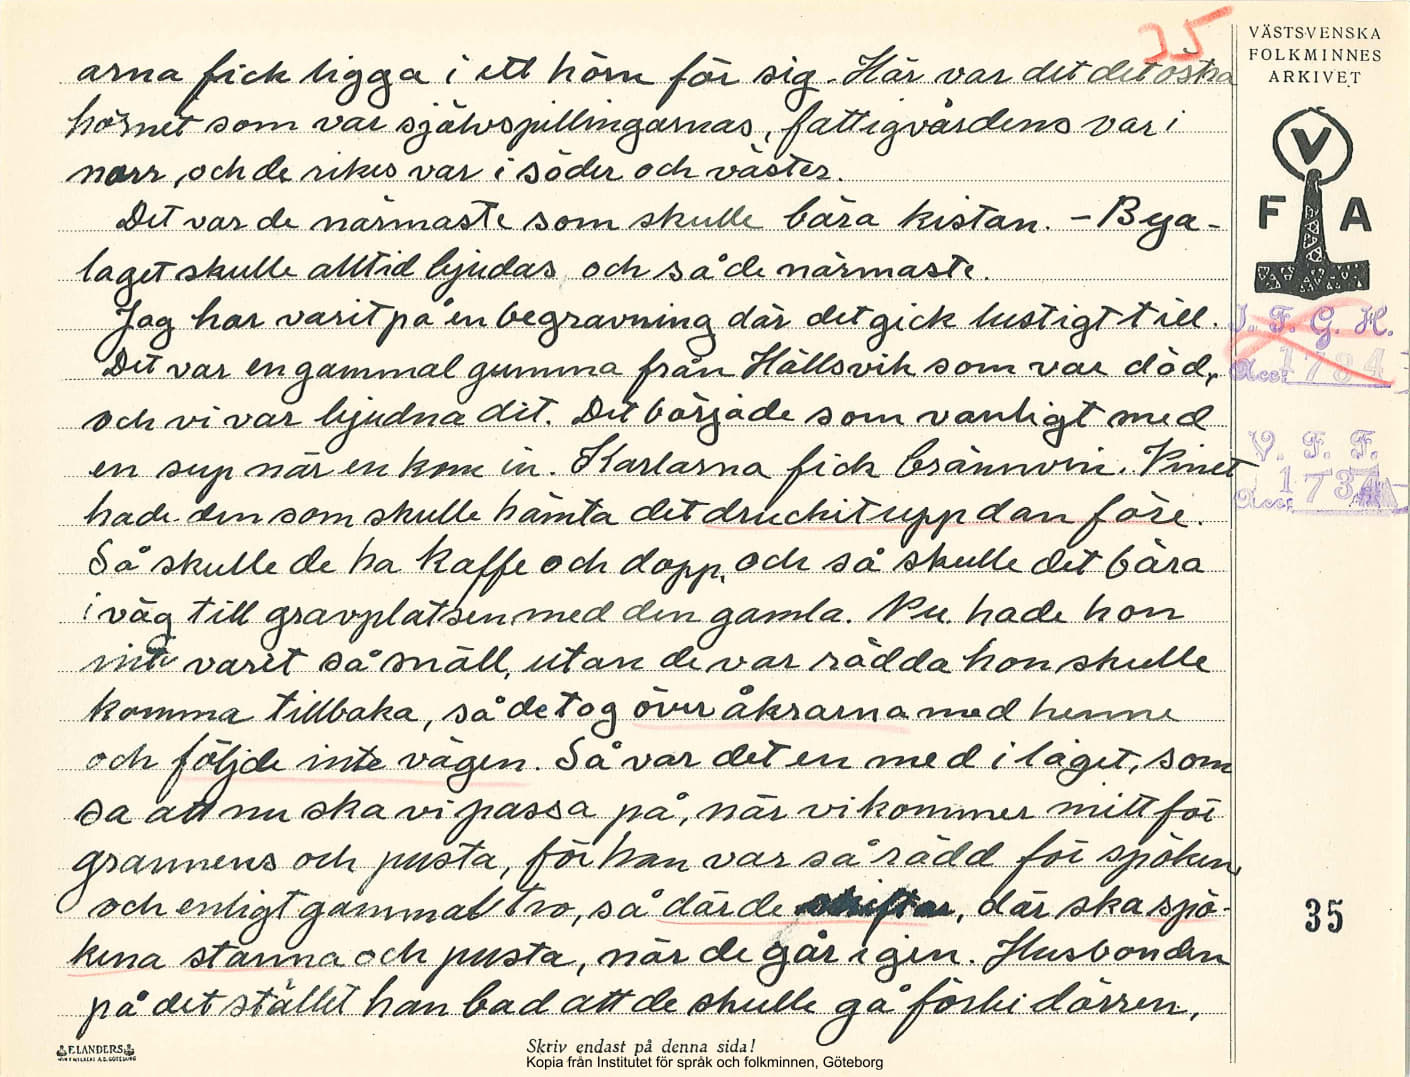 35
VÄSTSVENSKA
FOLKMINNES
ARKIVET
V
F A
I. F. G. H.
Acc: 1734
V. F. F.
Acc: 1734
arna fick ligga i ett hörn för sig. Här var det det östra
hörnet som var självspillingarnas, fattigvårdens var i
norr, och de rikes var i söder och väster.
Det var de närmaste som skulle bära kistan. – Bya-
laget skulle alltid bjudas och så de närmaste.
Jag har varit på en begravning där det gick lustigt till.
Det var en gammal gumma från Hällsvik som var död,
och vi var bjudna dit. Det började som vanligt med
en sup när en kom in. Karlarna fick brännvin. Vinet
hade den som skulle hämta det druckit upp dan före.
Så skulle de ha kaffe och dopp, och så skulle det bära
iväg till gravplatsen med den gamla. Nu hade hon
inte varit så snäll, utan de var rädda hon skulle
komma tillbaka, så de tog över åkrarna med henne
och följde inte vägen. Så var det en med i laget, som
sa att nu ska vi passa på, när vi kommer mitt för
grannens och pusta, för han var så rädd för spöken,
och enligt gammal tro, så där de skiftar, där ska spö-
kena stanna och pusta, när de går igen. Husbonden
på det stället han bad att de skulle gå förbi dörren,
35
ELANDERS
Skriv endast på denna sida!
Kopia från Institutet för språk och folkminnen, Göteborg